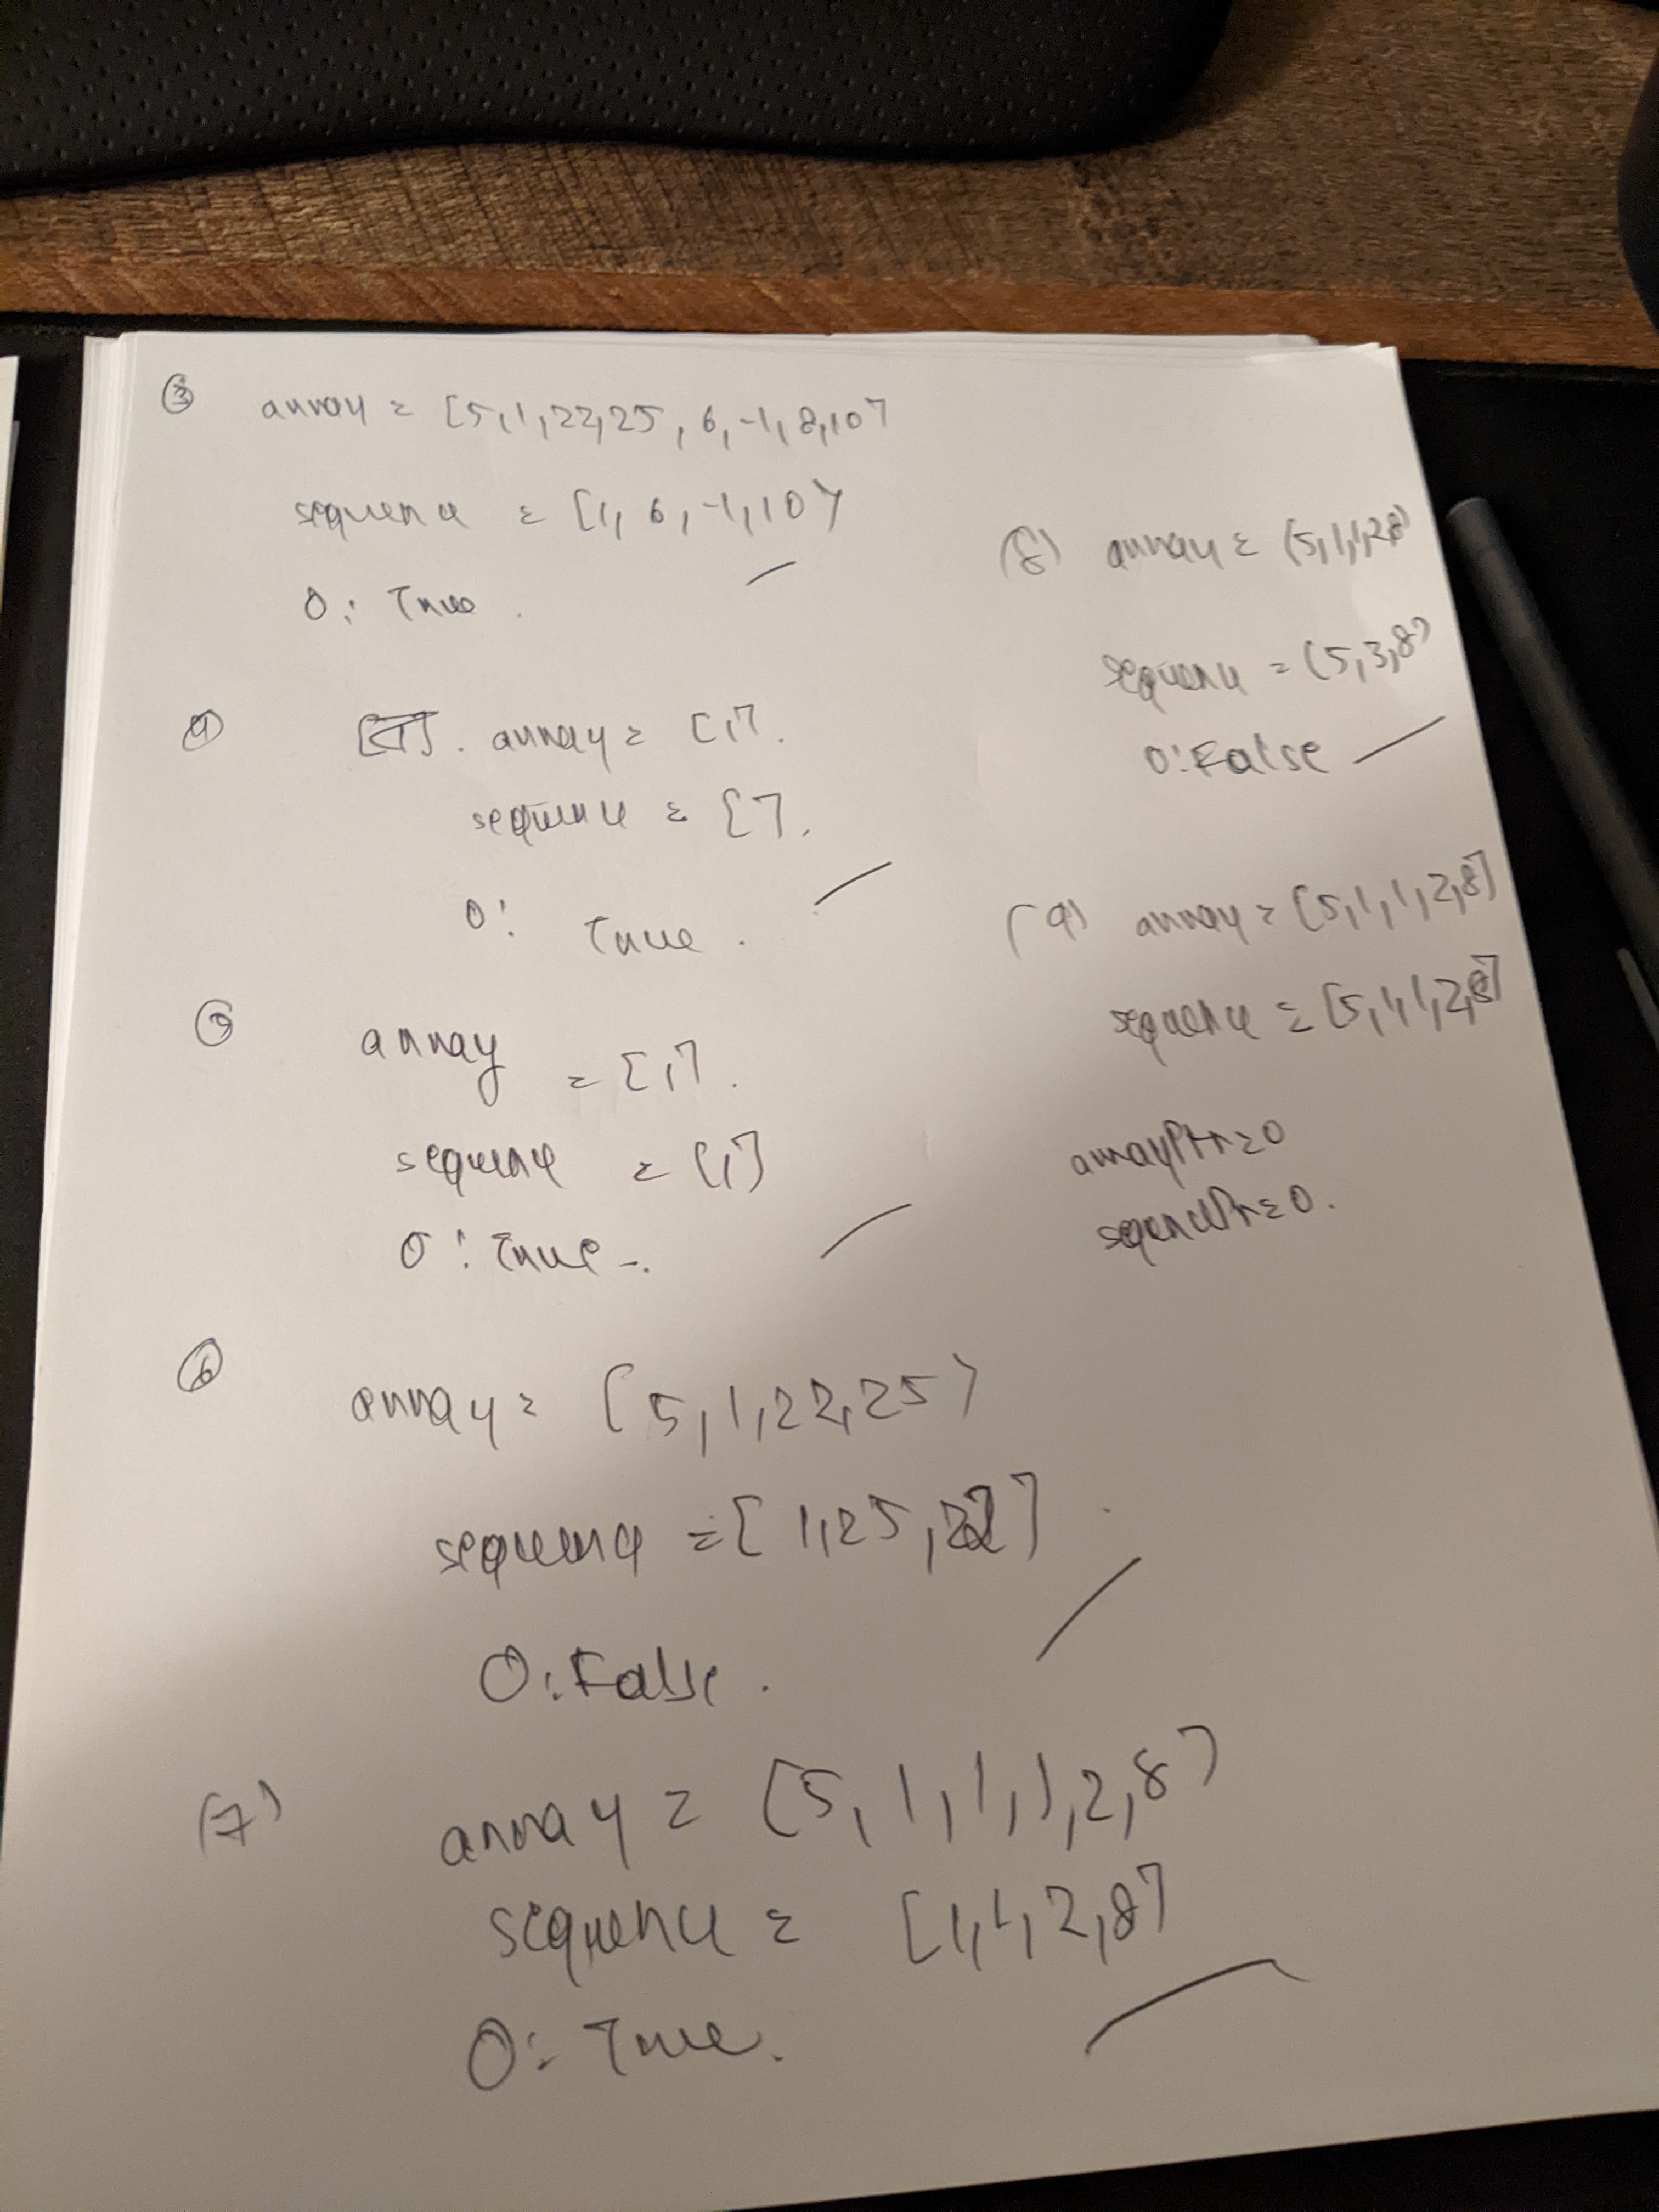 ③ array = [5,1,22,25,6,-1,8,10]
sequence = [1,6,-1,10]
O: True.
④ array = [1].
sequence = [].
O: True.
array = [1].
sequence = [1]
O: True.
⑥ array = [5,1,22,25]
sequence = [1,25,22].
O: False.
(7) array = [5,1,1,1,2,8]
sequence = [1,1,2,8]
O: True.
(8) array = [5,1,1,2,8]
sequence = [5,3,8]
O: False
(9) array = [5,1,1,2,8]
sequence = [5,1,1,2,8]
arrayPtr=0
=0.